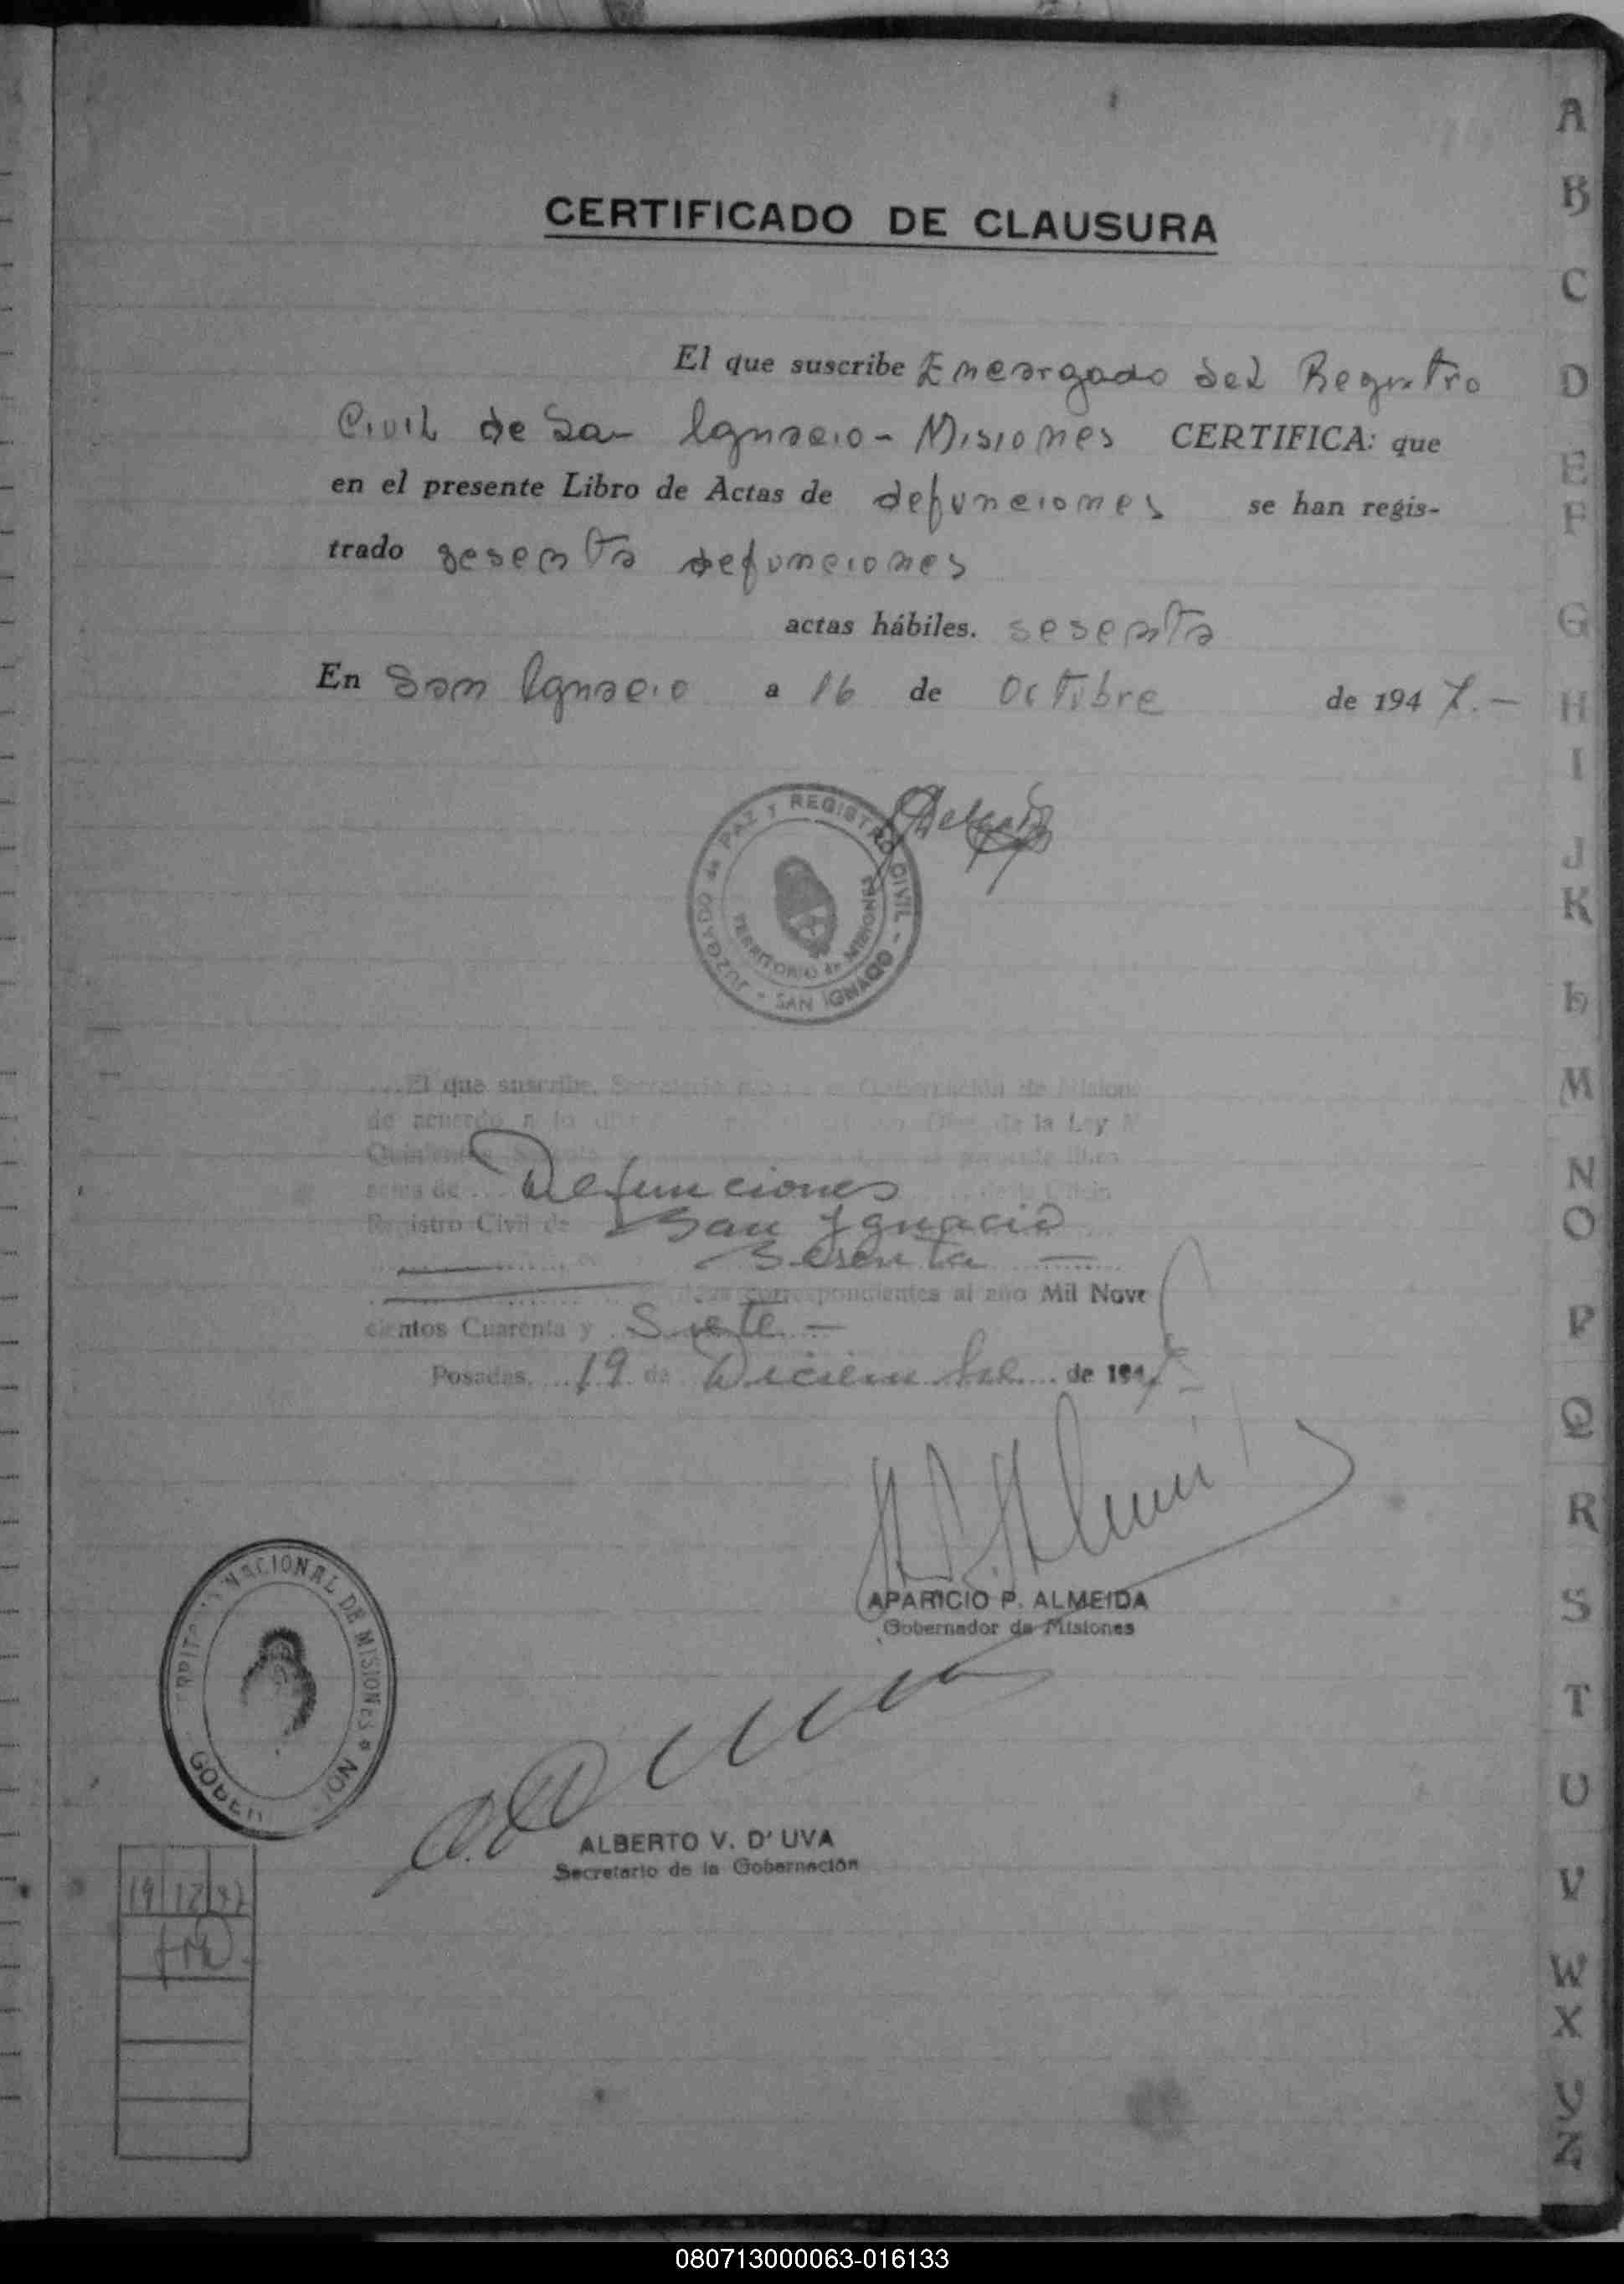 CERTIFICADO DE CLAUSURA
El que suscribe Encargado del Registro
Civil de San Ignacio - Misiones CERTIFICA: que
en el presente Libro de Actas de defunciones se han regis-
trado sesenta defunciones
actas hábiles. sesenta
En San Ignacio a 16 de Octubre de 1947.-
JUZGADO de PAZ Y REGISTRO CIVIL - SAN IGNACIO -
TERRITORIO de MISIONES
El que suscribe, Secretario Gobernación de Misione
de acuerdo a lo de la Ley N
actas de Defunciones
Registro Civil de San Ignacio
Sesenta —
correspondientes al año Mil Nove
cientos Cuarenta y Siete -
Posadas, 19 de Diciembre de 1947
APARICIO P. ALMEIDA
Gobernador de Misiones
NACIONAL DE MISIONES
ALBERTO V. D' UVA
Secretario de la Gobernación
19 12 47
A
B
C
D
E
F
G
H
I
J
K
L
M
N
O
P
Q
R
S
T
U
V
W
X
Y
Z
080713000063-016133